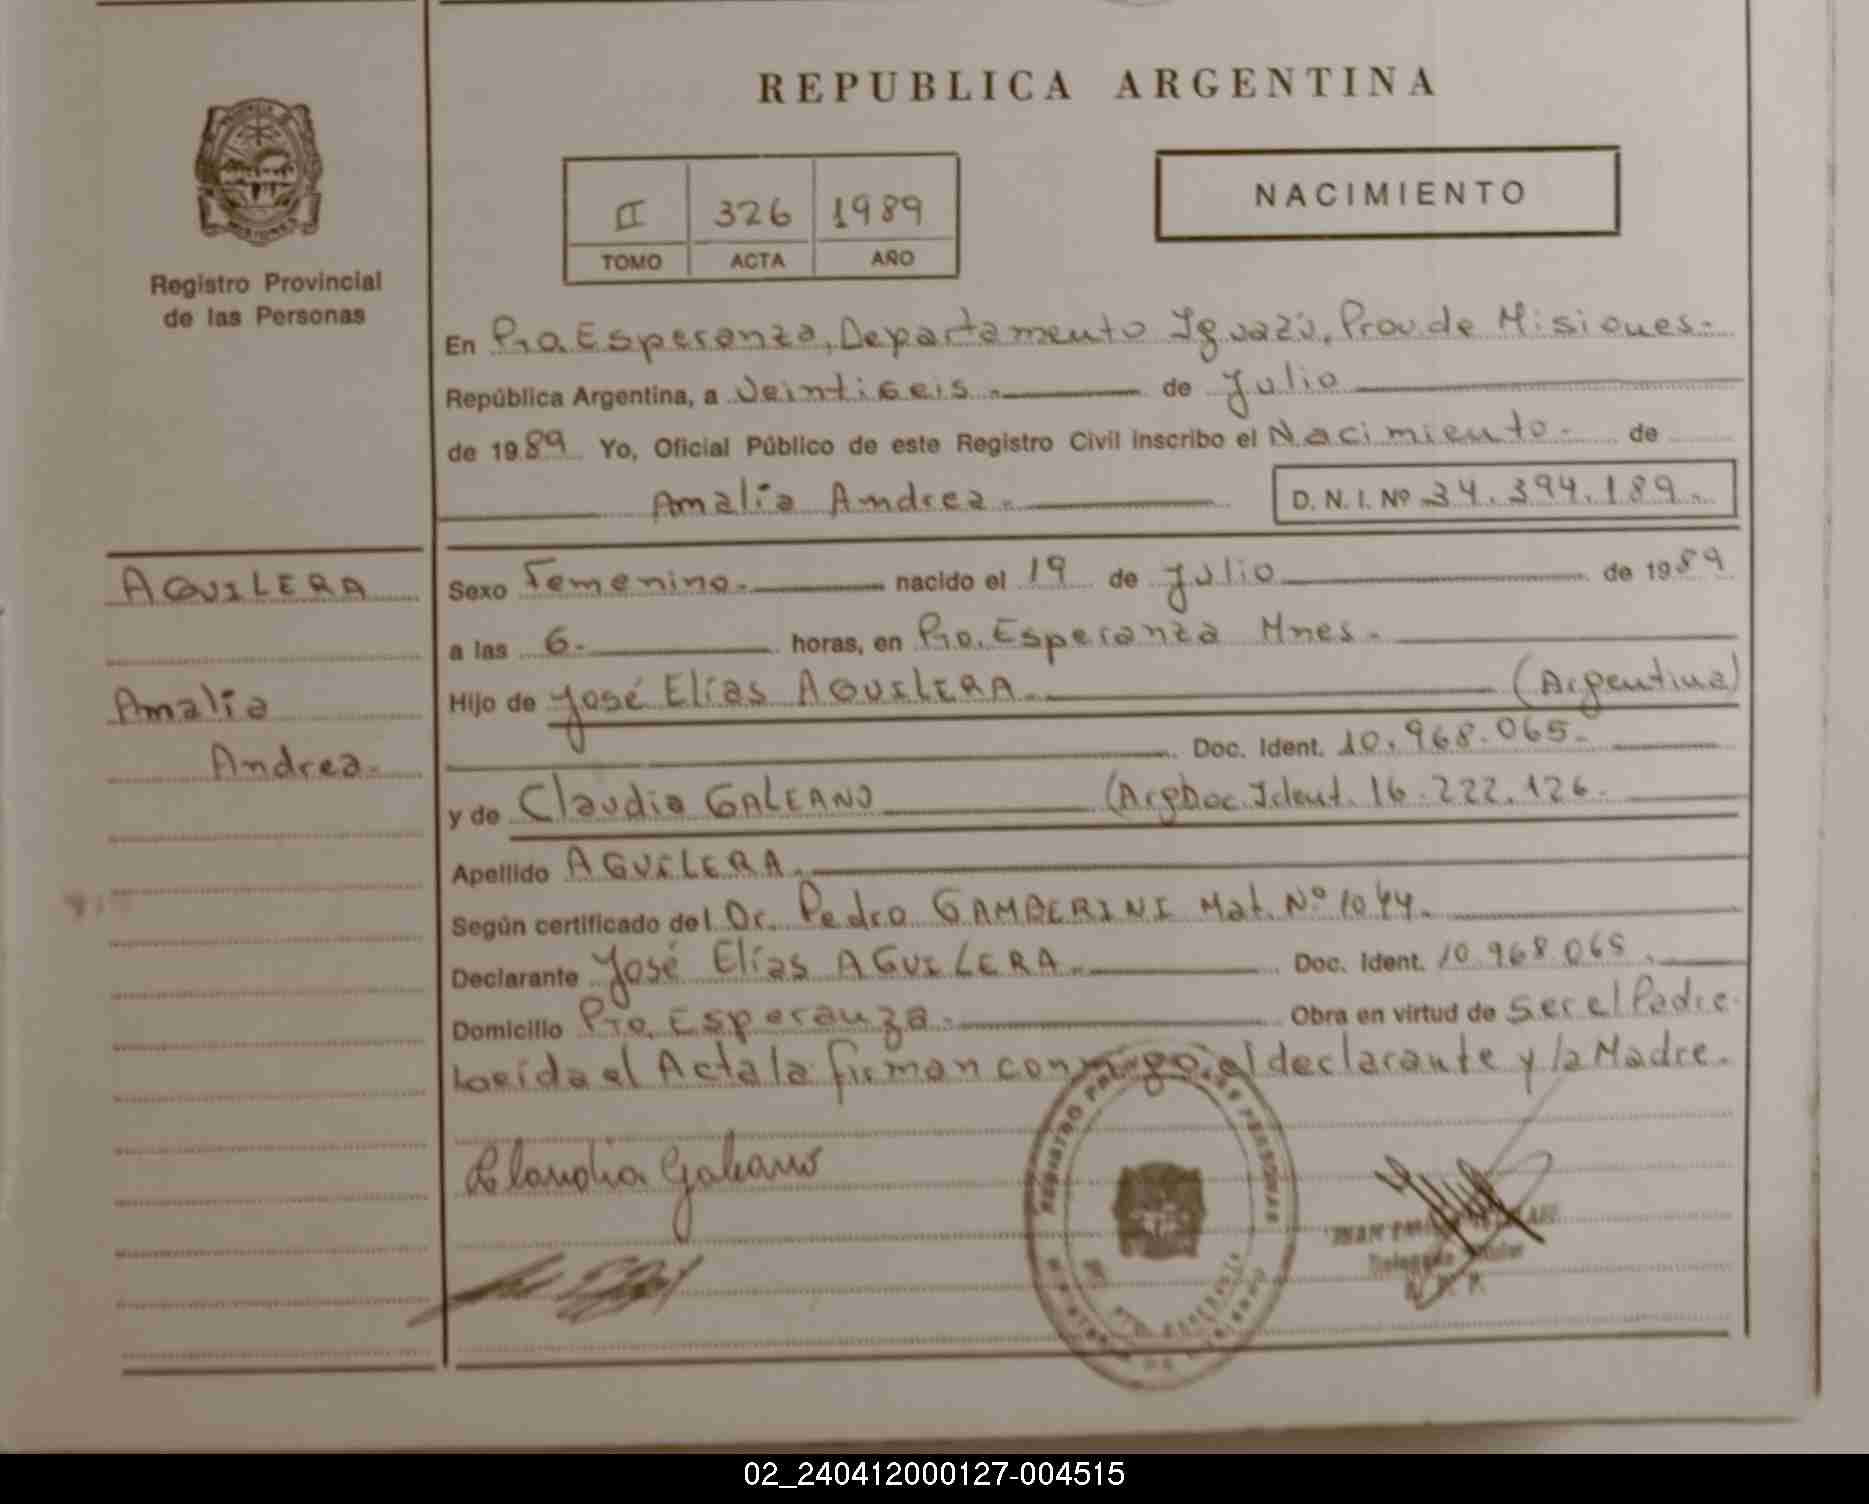 REPUBLICA ARGENTINA
Registro Provincial
de las Personas
II 326 1989
TOMO ACTA AÑO
NACIMIENTO
En Pto. Esperanza, Departamento Iguazú, Prov. de Misiones.-
República Argentina, a Veintiseis.- de Julio
de 1989 Yo, Oficial Público de este Registro Civil inscribo el Nacimiento.- de
Amalia Andrea.- D. N. I. Nº 34.394.189.-
AGUILERA
Amalia
Andrea.-
Sexo Femenino.- nacido el 19 de Julio de 1989
a las 6.- horas, en Pto. Esperanza Mnes.-
Hijo de José Elías AGUILERA.- (Argentina)
Doc. Ident. 10.968.065.-
y de Claudia GALEANO (Arg Doc. Ident. 16.222.126.-
Apellido AGUILERA.-
Según certificado del Dr. Pedro GAMBERINI Mat. Nº 1044.-
Declarante José Elías AGUILERA.- Doc. Ident. 10.968.065.-
Domicilio Pto. Esperanza.- Obra en virtud de ser el Padre.
Leída el Acta la firman conmigo, el declarante y la Madre.
Claudia Galeano
REGISTRO DE LAS PERSONAS
02_240412000127-004515